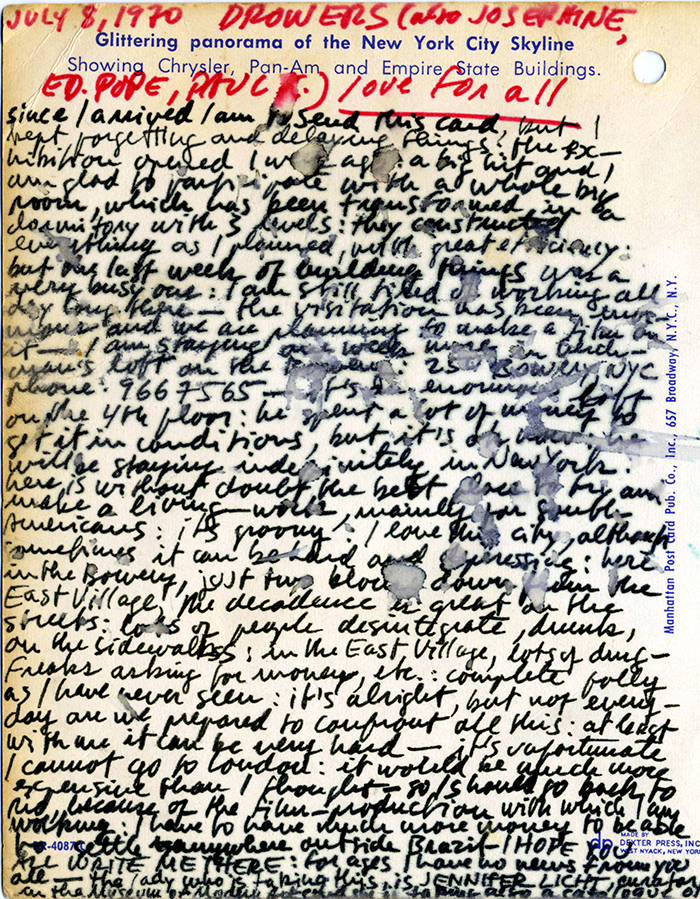 JULY 8, 1970 DROWERS (also JOSEPHINE,
Glittering panorama of the New York City Skyline
Showing Chrysler, Pan-Am and Empire State Buildings.
ED. POPE, PAUL K.) love for all
since I arrived I am to send this card, but I
kept forgetting and delaying things: the ex-
hibition opened 1 week ago: a big hit and I
am glad to participate with a whole big
room, which has been transformed in a
dormitory with 3 levels: they constructed
everything as I planned, with great efficiency:
but our last week of building things was a
very busy one: I am still tired of working all
day long there — the visitation has been enor-
mous and we are planning to make a film on
it — I am staying one week more in
man's loft on the Bowery: Bowery NYC
phone: 9667565 — it's an enormous loft
on the 4th floor: he spent a lot of money to
get it in conditions, but it's now he
will be staying indefinitely in New York:
here is without doubt the best place to
make a living-work, mainly for south-
Americans: it's groovy! I love this city, although
sometimes it can be hard and oppressive: here
in the Bowery, just two blocks down from the
East Village, the decadence is great on the
streets: lots of people desintegrate, drunks,
on the sidewalks; in the East Village, lots of drug-
freaks asking for money, etc.: complete folly
as I have never seen: it's alright, but not every-
day are we prepared to confront all this: at least
with me it can be very hard — it's unfortunate
I cannot go to London: it would be much more
expensive than I thought — so I should go back to
Rio, because of the film-production with which I am
working: I have to have much more money to be able
to settle anywhere outside Brazil — I HOPE YOU
ALL WRITE ME THERE: for ages I have no news from you
all — the lady who is taking this, is JENNIFER LICHT, curator
in the Museum of Modern also a catalogue of
4087
dp
MADE BY
DEXTER PRESS, INC.
WEST NYACK, NEW YORK
Manhattan Post Card Pub. Co., Inc., 657 Broadway, N.Y.C., N.Y.